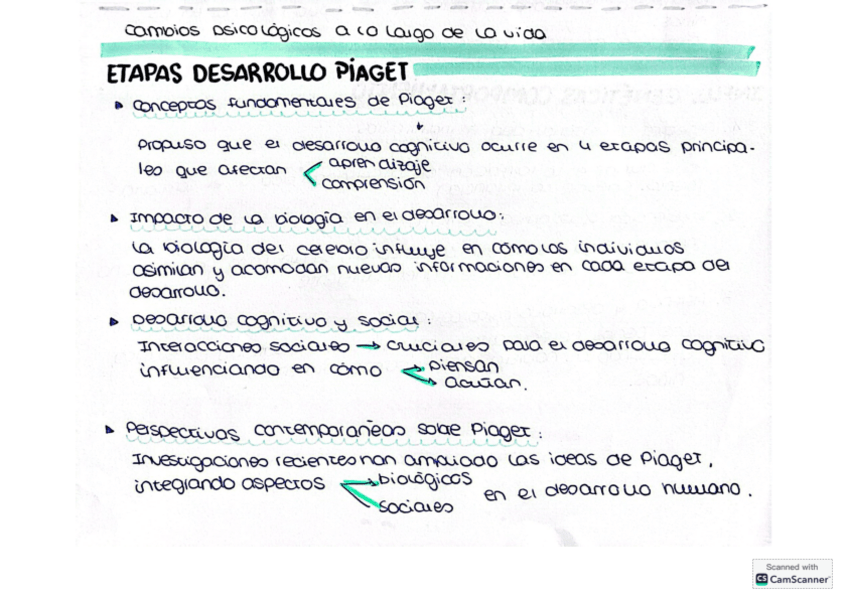 Cambios psicológicos a lo largo de la vida
ETAPAS DESARROLLO PIAGET
Conceptos fundamentales de Piaget:
Propuso que el desarrollo cognitivo ocurre en 4 etapas principa-
les que afectan
aprendizaje
comprensión
Impacto de la biología en el desarrollo:
La biología del cerebro influye en cómo los individuos
asimilan y acomodan nuevas informaciones en cada etapa del
desarrollo.
Desarrollo cognitivo y social:
Interacciones sociales → cruciales para el desarrollo cognitivo
influenciando en cómo
piensan
actúan.
Perspectivas contemporañeas sobre Piaget:
Investigaciones recientes han ampliado las ideas de Piaget,
integrando aspectos
biológicos
sociales
en el desarrollo humano.
Scanned with
CS CamScanner